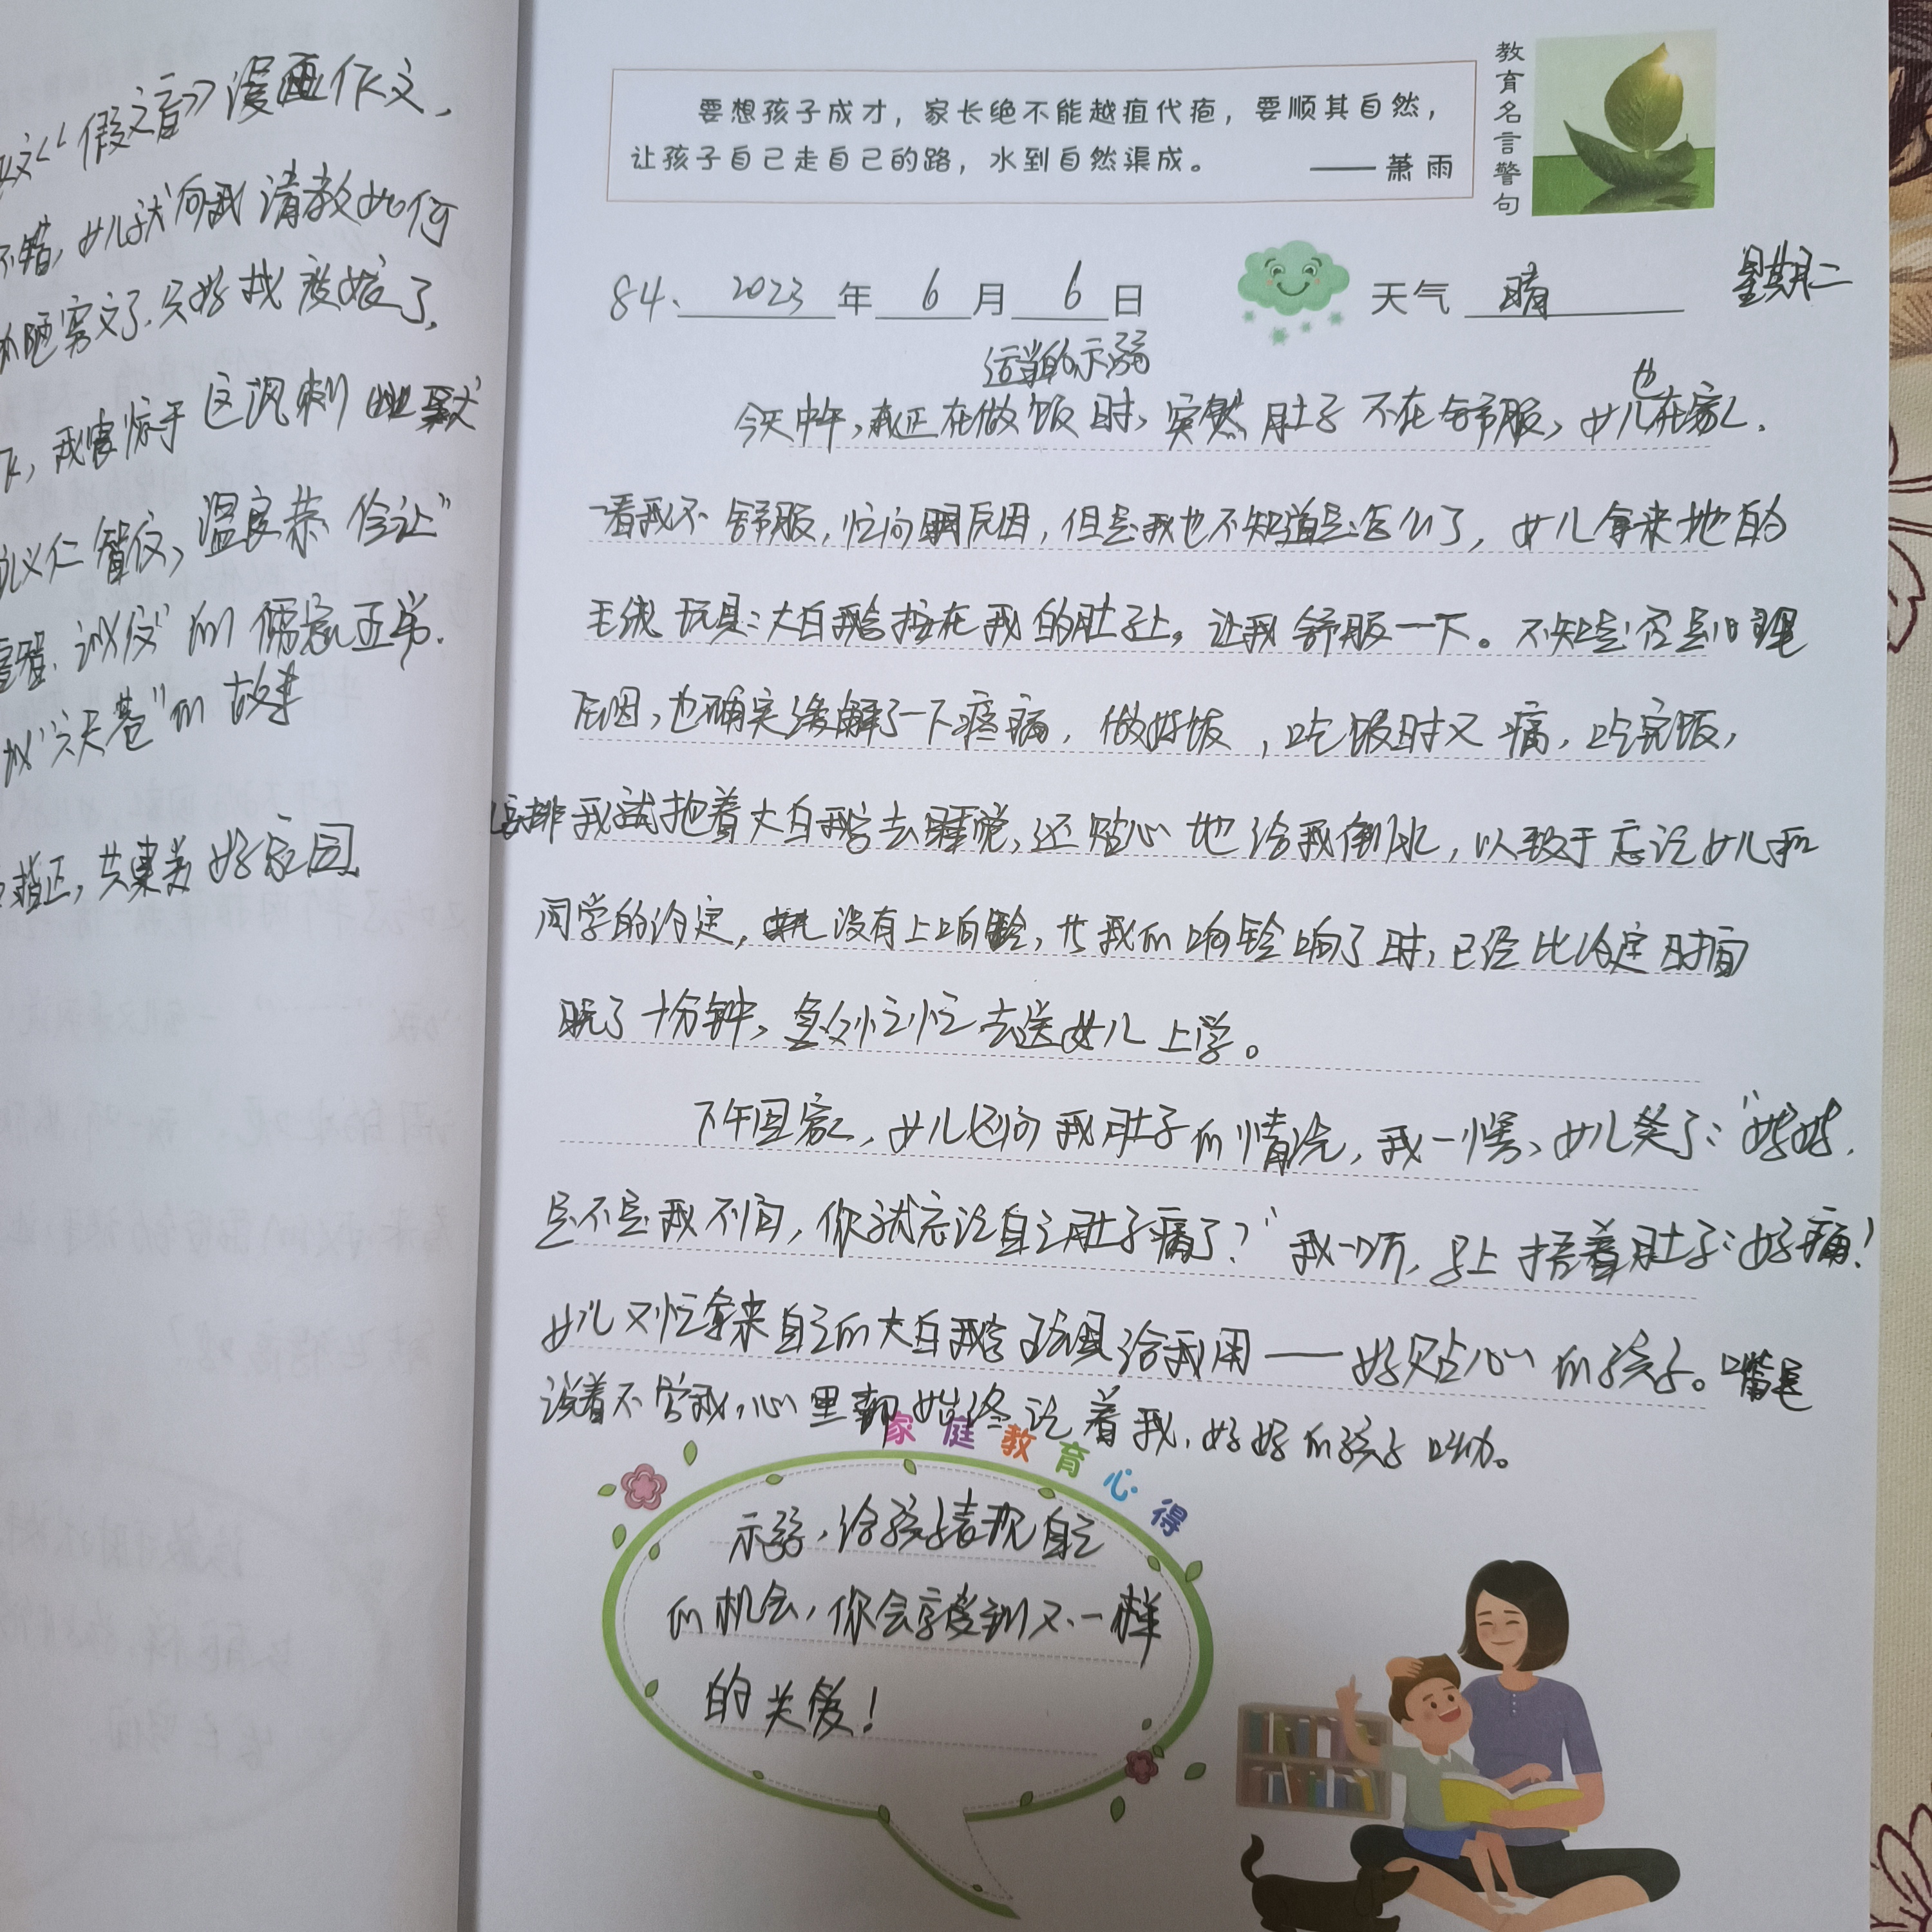 文《假文盲》漫画作文，
不错，女儿就向我请教如何
晒穷文了，只好找度娘了。
下，我震惊于这讽刺幽默
义仁智信，温良恭俭让”
诚信”的儒家正学.
“六尺巷”的故事
指正，共束美好家园.
要想孩子成才，家长绝不能越疽代疱，要顺其自然，
让孩子自己走自己的路，水到自然渠成。 ——萧雨
教育名言警句
84、2023年6月6日 天气 晴 星期二
适当的示弱
今天中午，我正在做饭时，突然肚子不在舒服，女儿也在家，
一看我不舒服，忙问明原因，但是我也不知道是怎么了，女儿拿来她的
毛绒玩具：大白鹅按在我的肚子上，让我舒服一下。不知是否是心理
原因，也确实缓解了一下疼痛，做好饭，吃饭时又痛，吃完饭，
安排我试抱着大白鹅去睡觉，还贴心地给我倒水，以致于忘记女儿和
同学的约定，就没有上响铃，我的响铃响了时，已经比约定时间
晚了十分钟，急匆忙忙去送女儿上学。
下午回家，女儿还问我肚子的情况，我一愣，女儿笑了：“妈妈，
是不是我不问，你就忘记自己肚子痛了？”我一听，马上捂着肚子：好痛！
女儿又忙拿来自己的大白鹅玩具给我用——好贴心的孩子。嘴里
说着不管我，心里却始终记着我，好好的孩子呦。
家庭教育心得
示弱，给孩子表现自己
的机会，你会享受到不一样
的关爱！